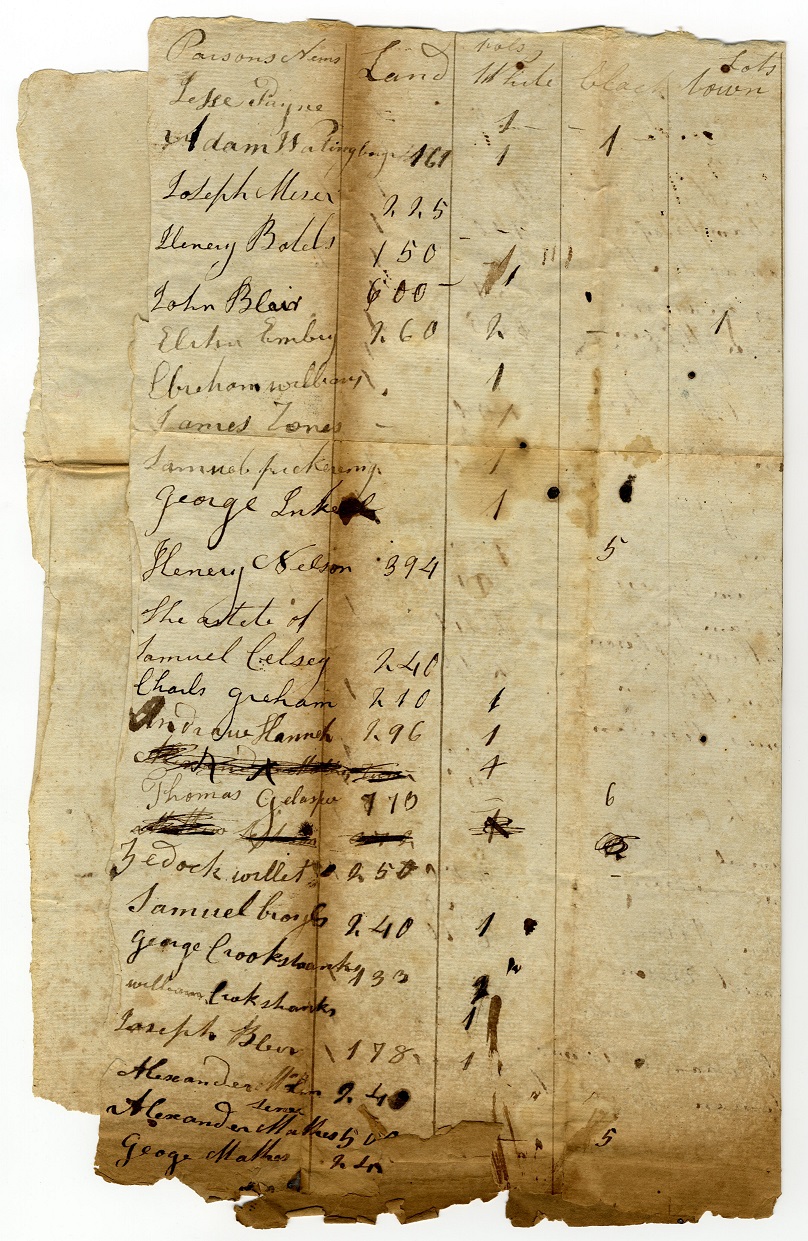 Parsons Nems Land pols White black Lots town
Jesse Payne - 1 -
Adam 161 1 1
Joseph Miser 225
Henery Bolds 150 - 1
John Blair 600 - 1
Elihu Embry 260 2 - 1
Ebreham williams 1
James Jones - 1
Samuel pickering 1
George 1
Henery Nelson 394 5
the astate of
Samuel Celsey 240
Charls Greham 210 1
Andraw Hanneh 296 1
1
Thomas Gelaspee 710 - 6
Zedock willet 250 - -
Samuel broyls 240 1
George Crookshanks 433 2
william Crokshanks 1
Joseph Blevr 178 1
Alexander 240
sener
Alexander Mathes 500 5
Geoge Mathes